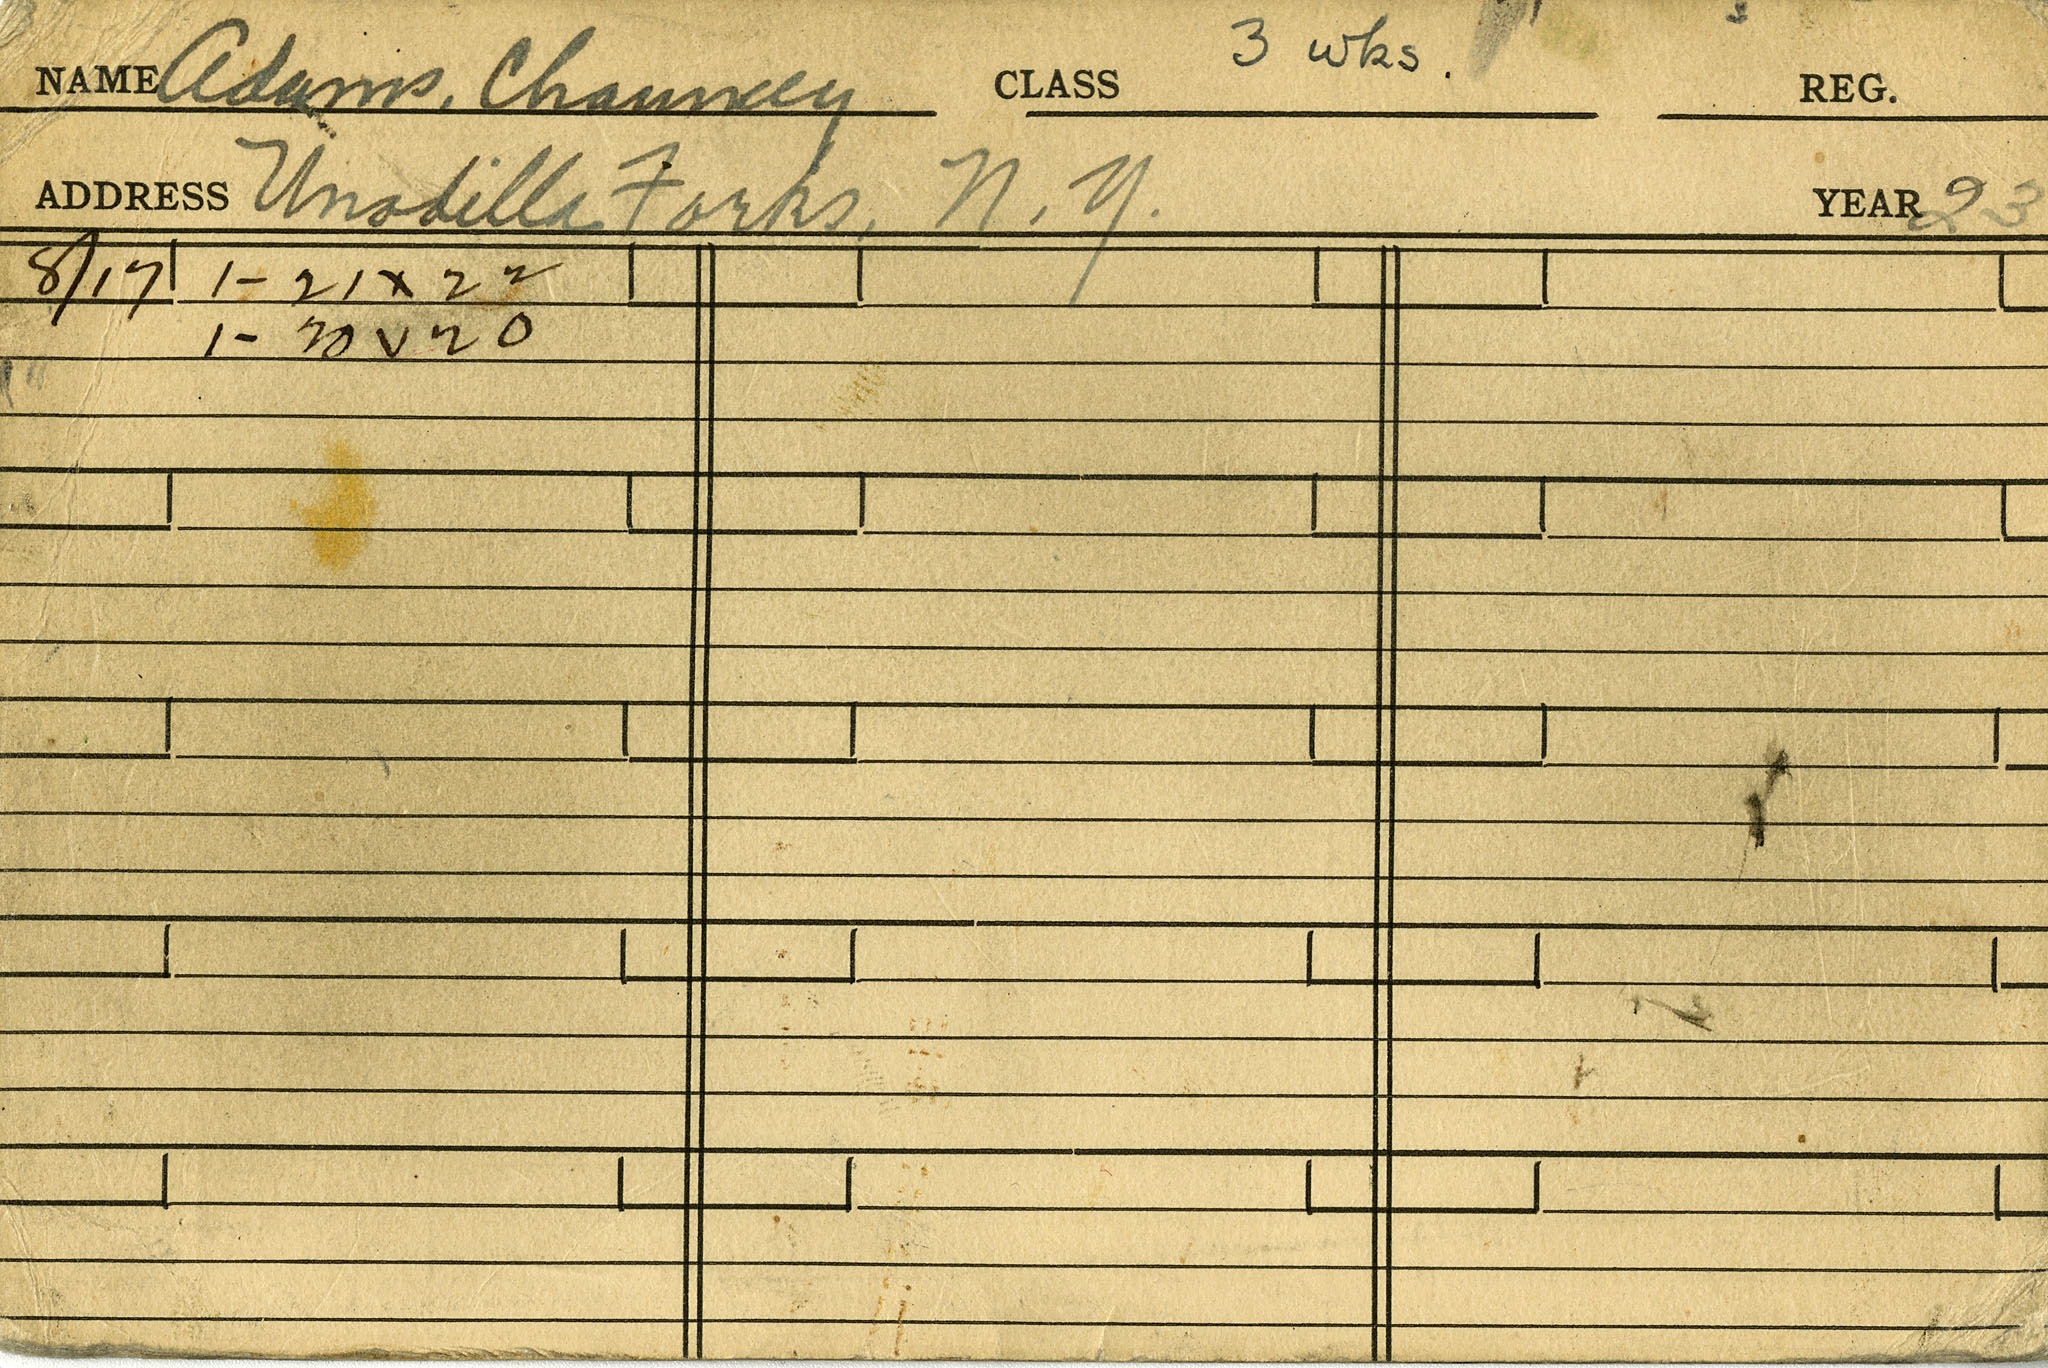 NAME Adams, Chauncey CLASS 3 wks. REG.
ADDRESS Unadilla Forks, N. Y. YEAR 23
8/17 1- 21 x 22
1- 20 x 20